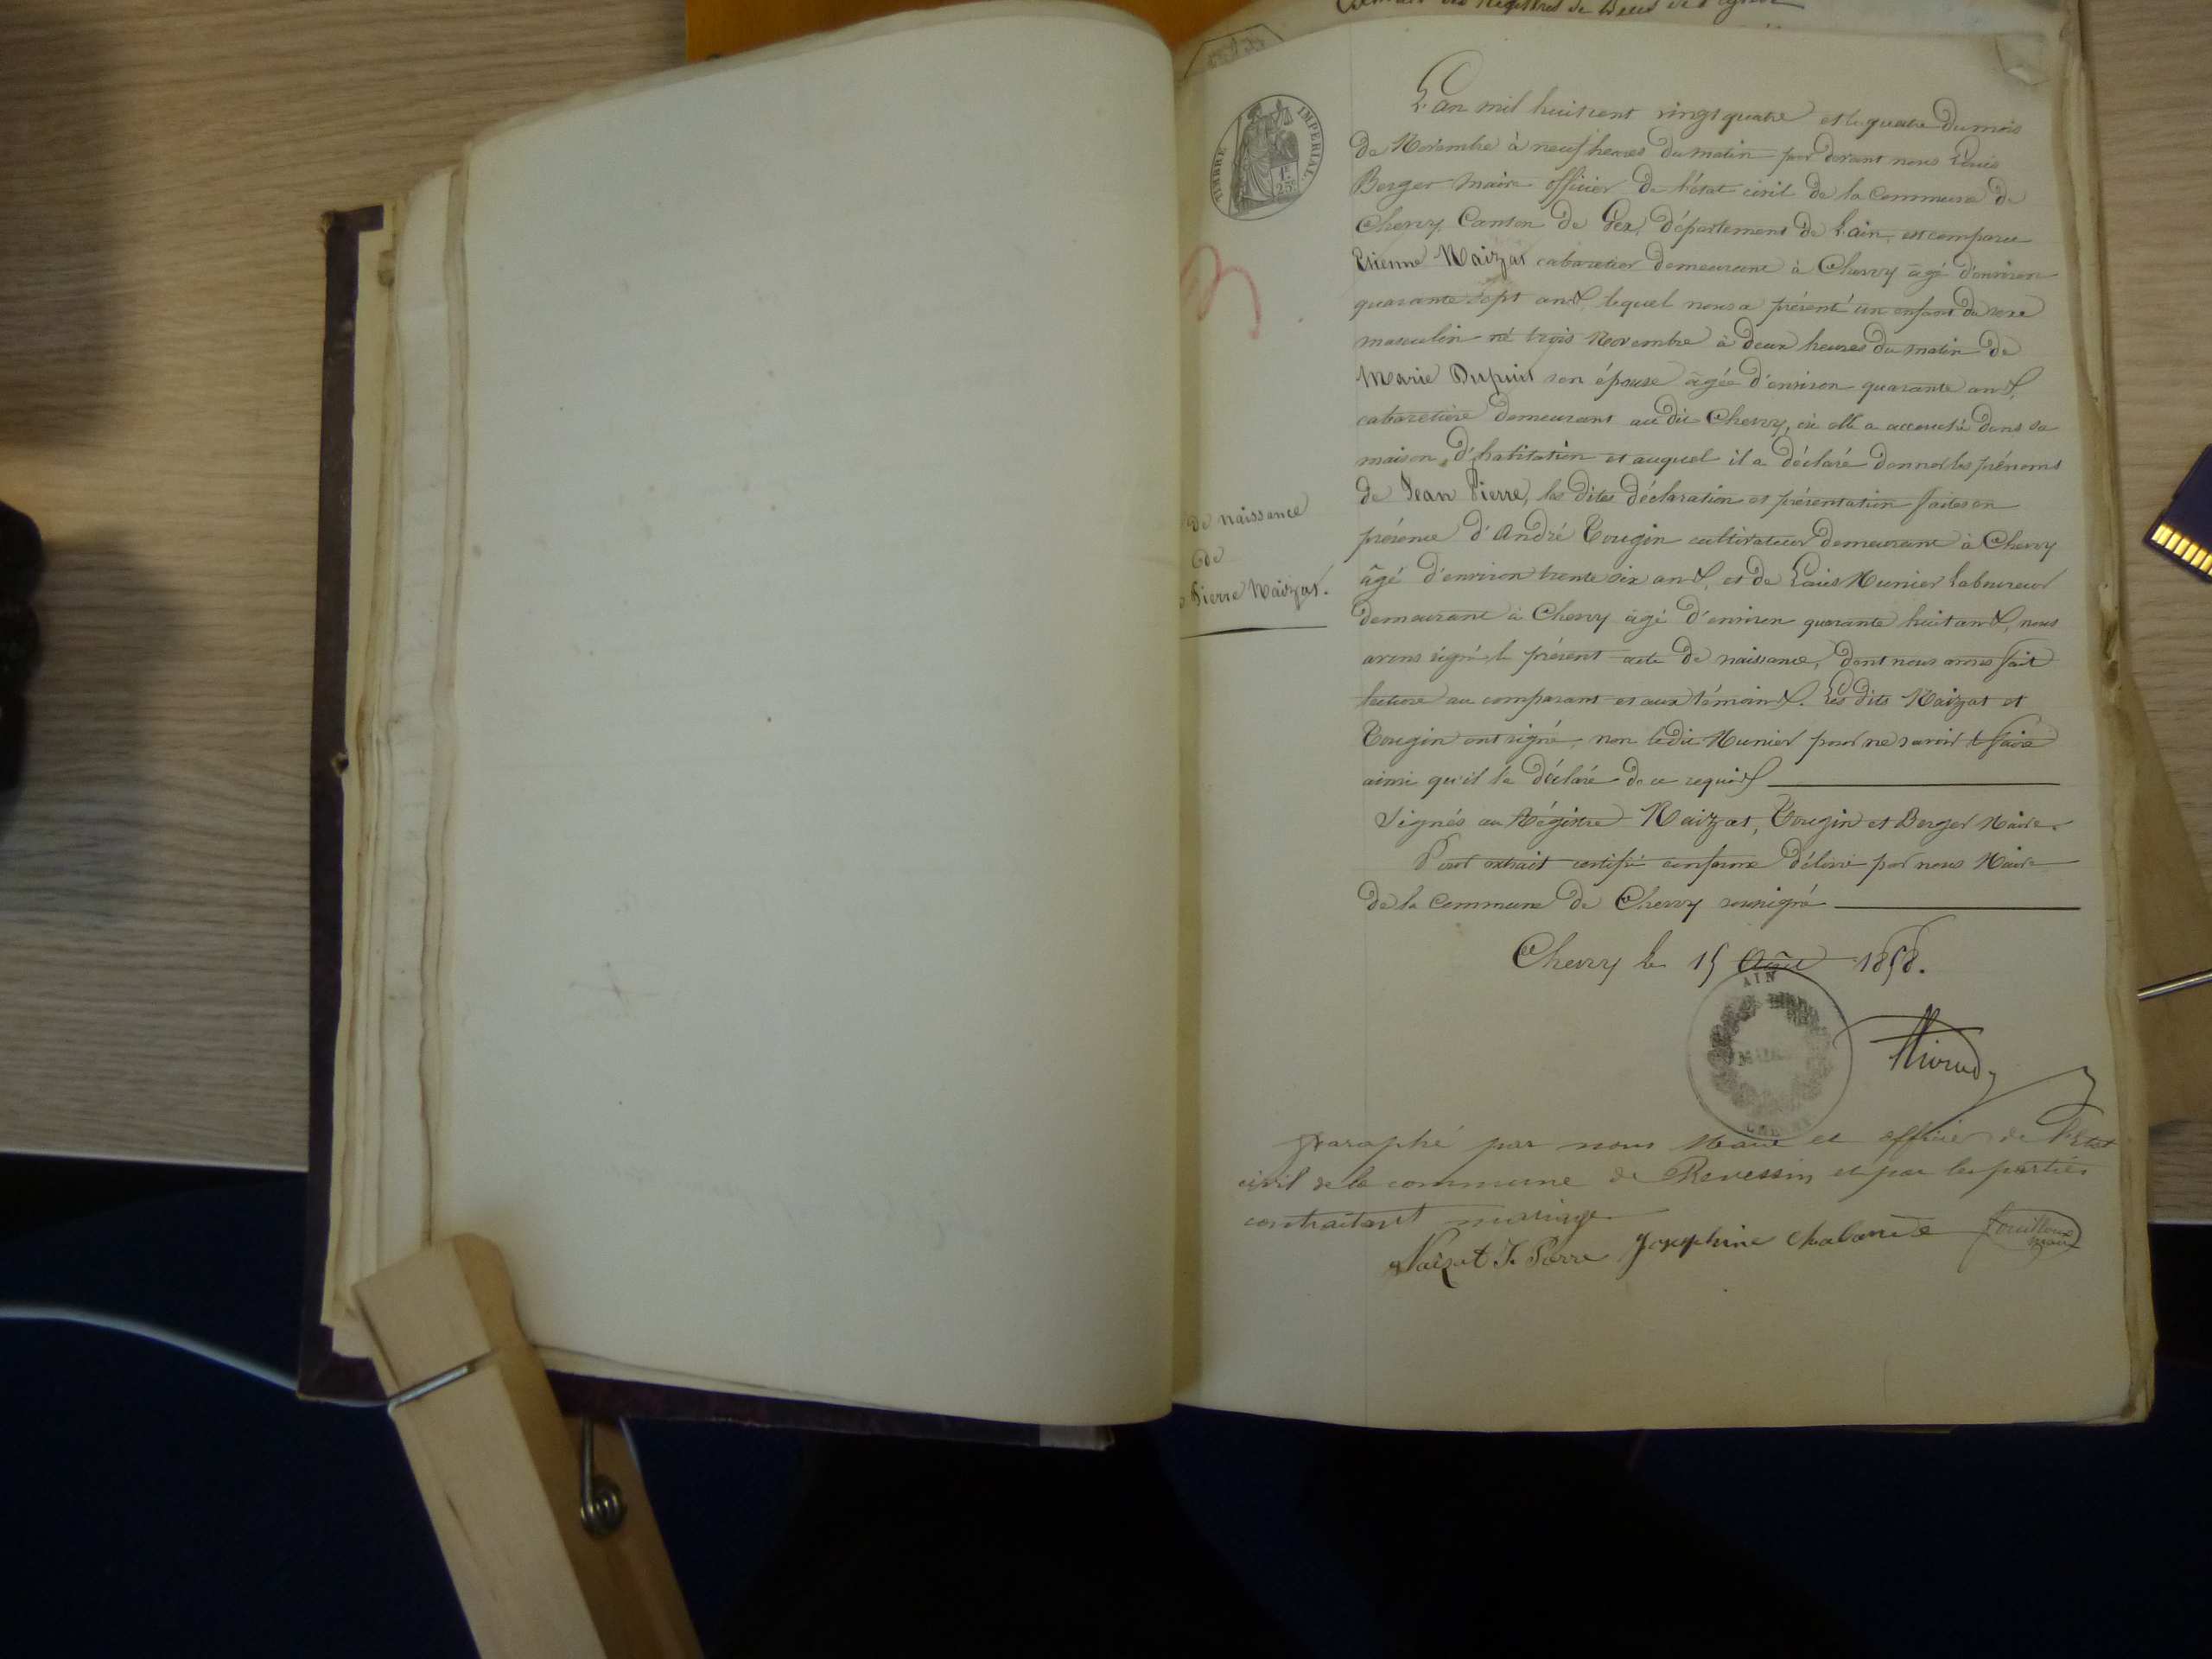 TIMBRE IMPERIAL
1F 25C
L'an mil huit cent vingt quatre et le quatre du mois
de Novembre à neuf heures du matin par devant nous Louis
Berger Maire officier de l'état civil de la Commune de
Chevry Canton de Gex, département de l'ain, est comparu
Etienne Maizat cabaretier demeurant à Chevry âgé d'environ
quarante sept ans, lequel nous a présenté un enfant du sexe
masculin né trois Novembre à deux heures du matin de
Marie Dupuit son épouse âgée d'environ quarante ans,
cabaretière demeurant au dit Chevry, où elle a accouché dans sa
maison d'habitation et auquel il a déclaré donner les prénoms
de Jean Pierre, les dites déclaration et présentation faites en
présence d'André Tougin cultivateur demeurant à Chevry
âgé d'environ trente six ans, et de Louis Munier laboureur
demeurant à Chevry âgé d'environ quarante huit ans, nous
avons signé le présent acte de naissance, dont nous avons fait
lecture au comparant et aux témoins. Les dits Maizat et
Tougin ont signé, non le dit Munier pour ne savoir le faire
ainsi qu'il l'a déclaré de ce requis
Signés au Régistre Maizat, Tougin et Berger Maire.
Pour extrait certifié conforme délivré par nous Maire
de la Commune de Chevry soussigné
Chevry le 15 Août 1858.
de naissance
de
Pierre Maizat.
AIN
MAIRIE
paraphé par nous Maire et officier de l'Etat
civil de la commune de Prevessin et par les parties
contractant mariage
Maizat J. Pierre Josephine Chabanne Fouilloux
maire